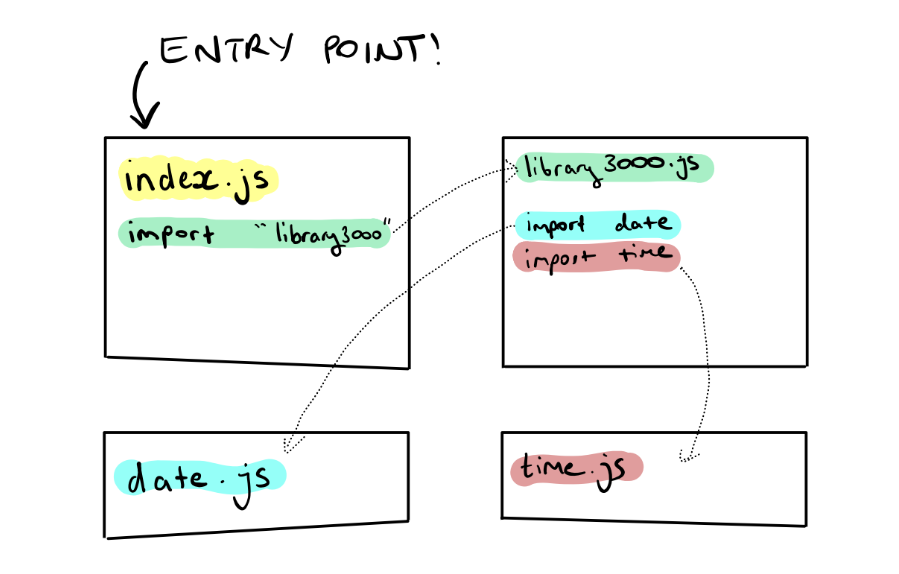 ENTRY POINT!
index.js
import "library3000"
library3000.js
import date
import time
date.js
time.js